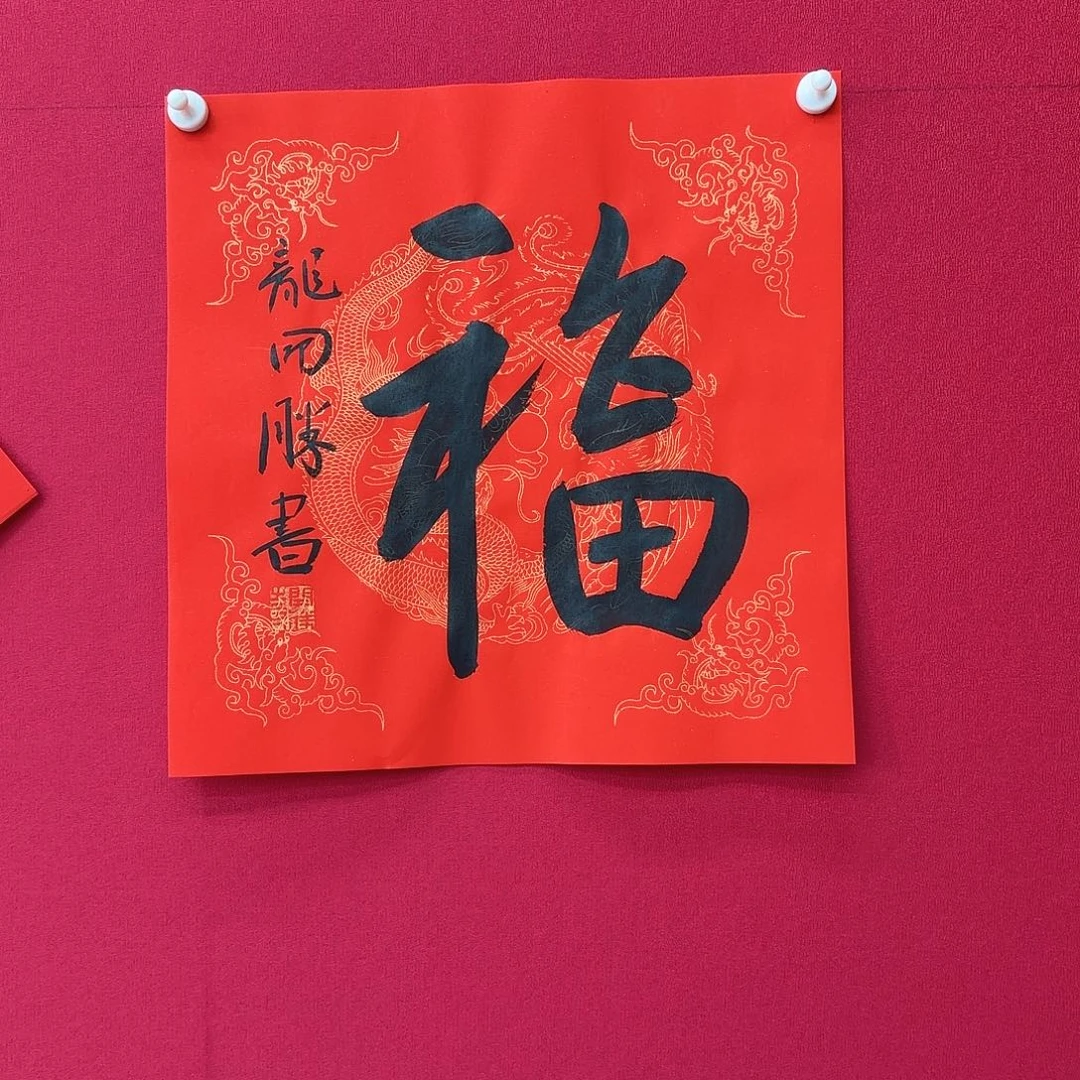 福
龍回勝書